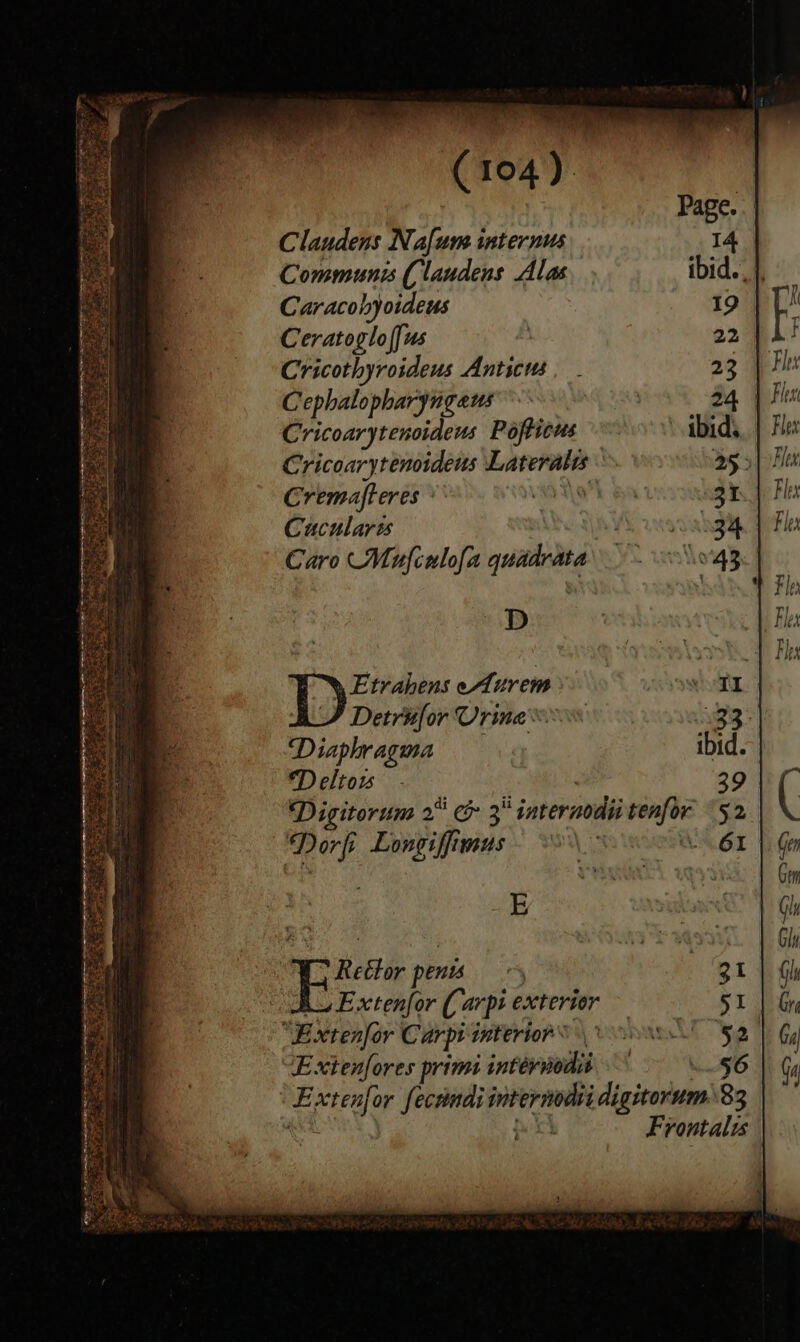 (104)
Page.
Claudens Naſum internus 14
Communis Claudens Alas ibid.
Caracohyoideus 19
Ceratogloſſus 22
Cricothyroideus Anticus 23
Cephalopharyngæus 24
Cricoarytenoideus Poſticus ibid.
Cricoarytenoideus Lateralis 25
Cremaſteres 31
Cucularis 34
Caro Muſculoſa quadrata 43
D
DEtrahens Aurem 11
Detruſor Urinæ 33
Diaphragma ibid.
Deltois 39
Digitorum 2ⁱⁱ & 3ⁱⁱ internodii tenſor 52
Dorſi Longiſſimus 61
E
ERector penis 31
Extenſor Carpi exterior 51
Extenſor Carpi interior 52
Extenſores primi internodii 56
Extenſor ſecundi internodii digitorum 83
Frontalis